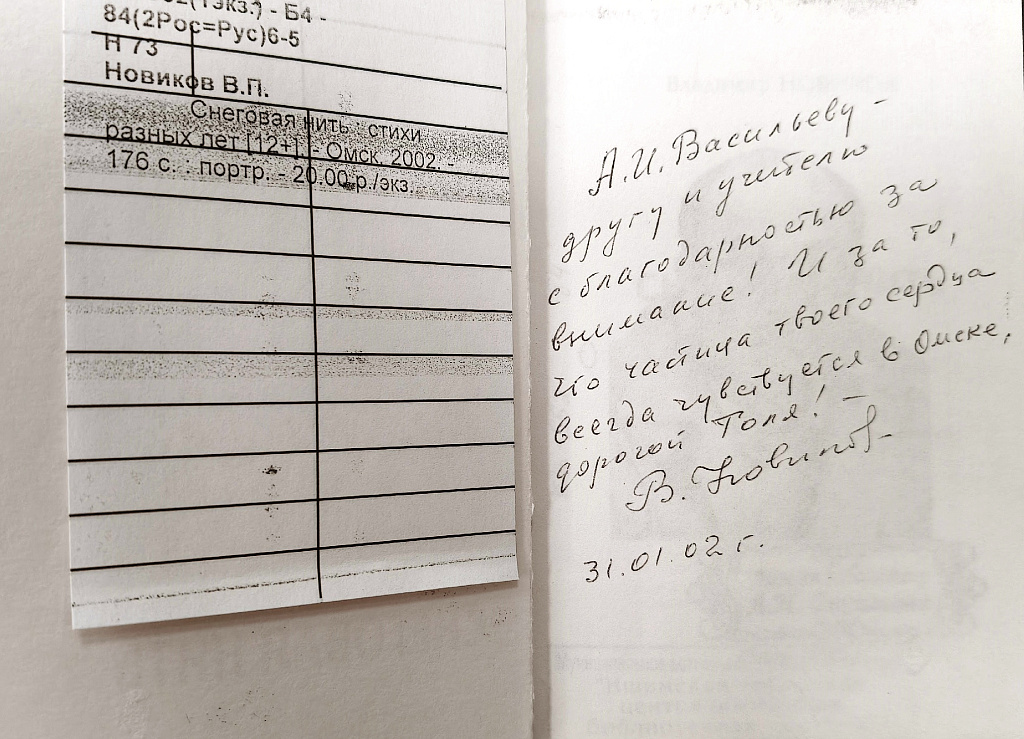 (1экз.) - Б4 -
84(2Рос=Рус)6-5
Н 73
Новиков В.П.
Снеговая нить : стихи
разных лет [12+]. - Омск, 2002. -
176 с. : портр. - 20.00 р./экз.
А.И. Васильеву -
другу и учителю
с благодарностью за
внимание! И за то,
что частица твоего сердца
всегда чувствуется в Омске,
дорогой Толя! -
В. Новиков
31.01.02 г.